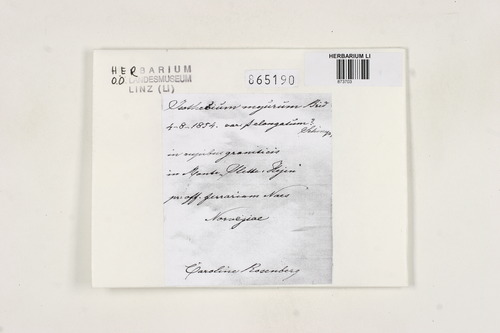 HERBARIUM
O.Ö. LANDESMUSEUM
LINZ (LI)
865190
HERBARIUM LI
Isothecium myurum Brid
4-8-1854. var. β elongatum?
Schimp.
in rupibus graniticis
in Monte
pr. off. ferrariam Naes
Norvegiae
Caroline Rosenberg